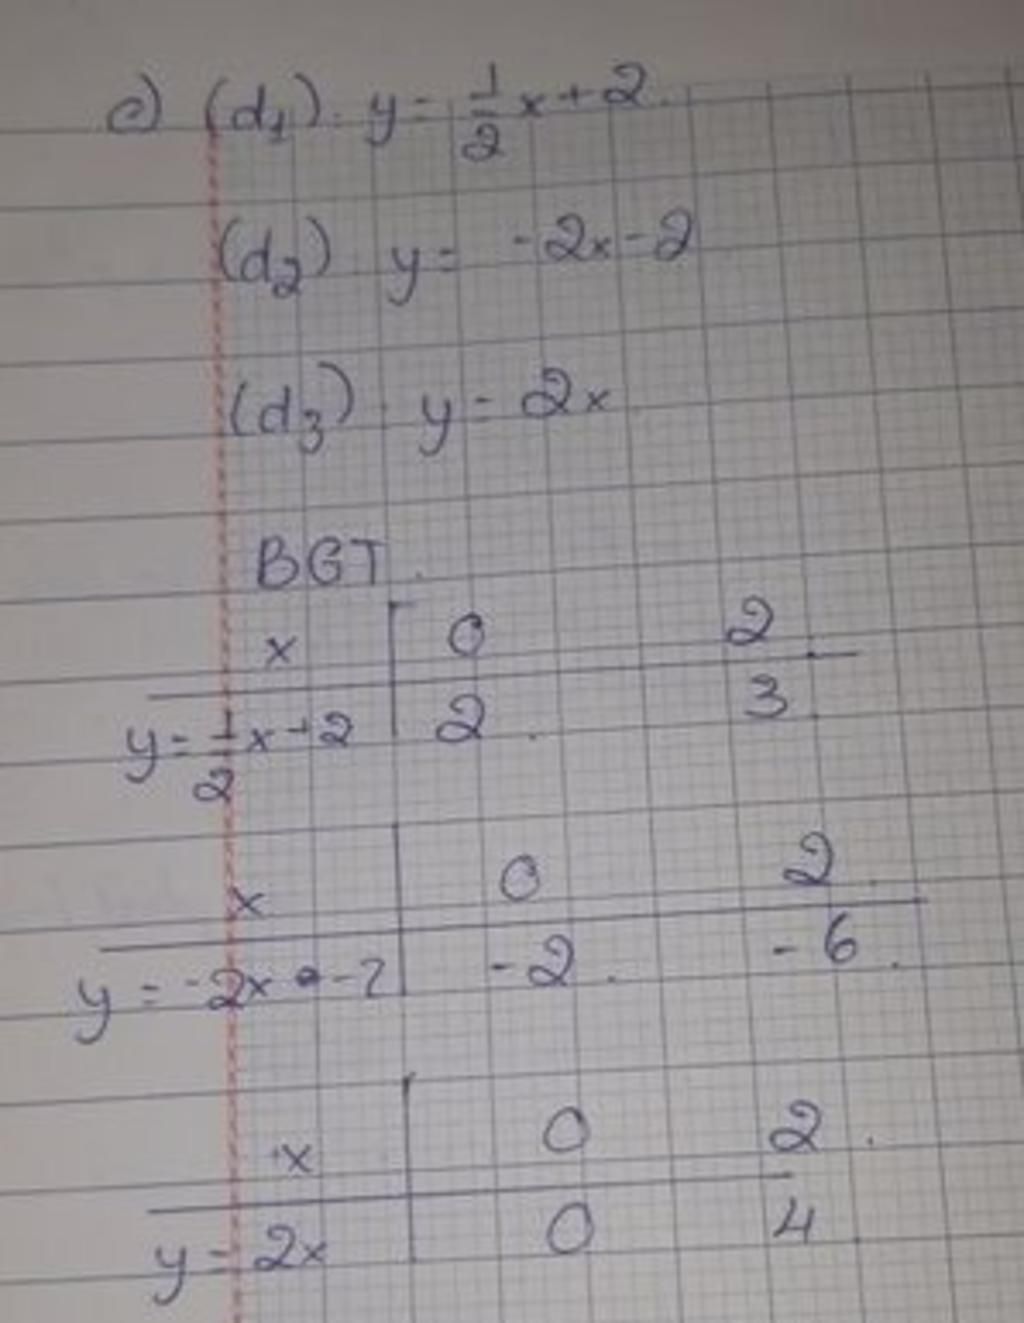 c) (d1). y = 1/2 x + 2.
(d2) y = -2x - 2
(d3) y = 2x
BGT.
x | 0 2
y = 1/2 x + 2 | 2 3
x | 0 2
y = -2x - 2 | -2 -6
x | 0 2
y = 2x | 0 4